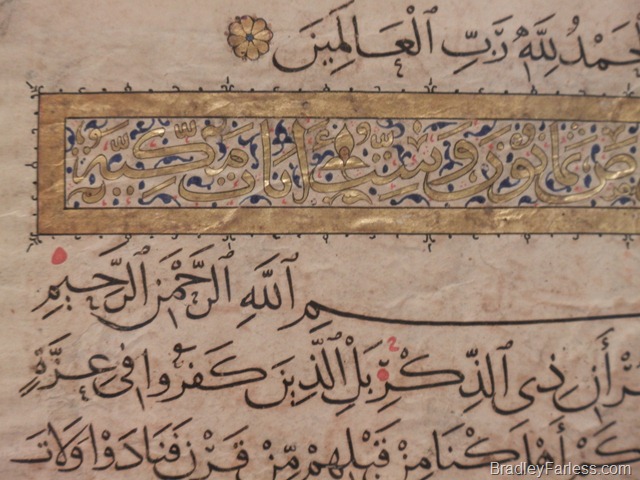 لْحَمْدُ لِلَّهِ رَبِّ الْعَالَمِينَ
ثمانون وست آيات مكية
بِسْمِ اللَّهِ الرَّحْمَٰنِ الرَّحِيمِ
قُرْآنِ ذِي الذِّكْرِ بَلِ الَّذِينَ كَفَرُوا فِي عِزَّةٍ
كَمْ أَهْلَكْنَا مِنْ قَبْلِهِمْ مِّنْ قَرْنٍ فَنَادَوْا وَلَاتَ
BradleyFarless.com